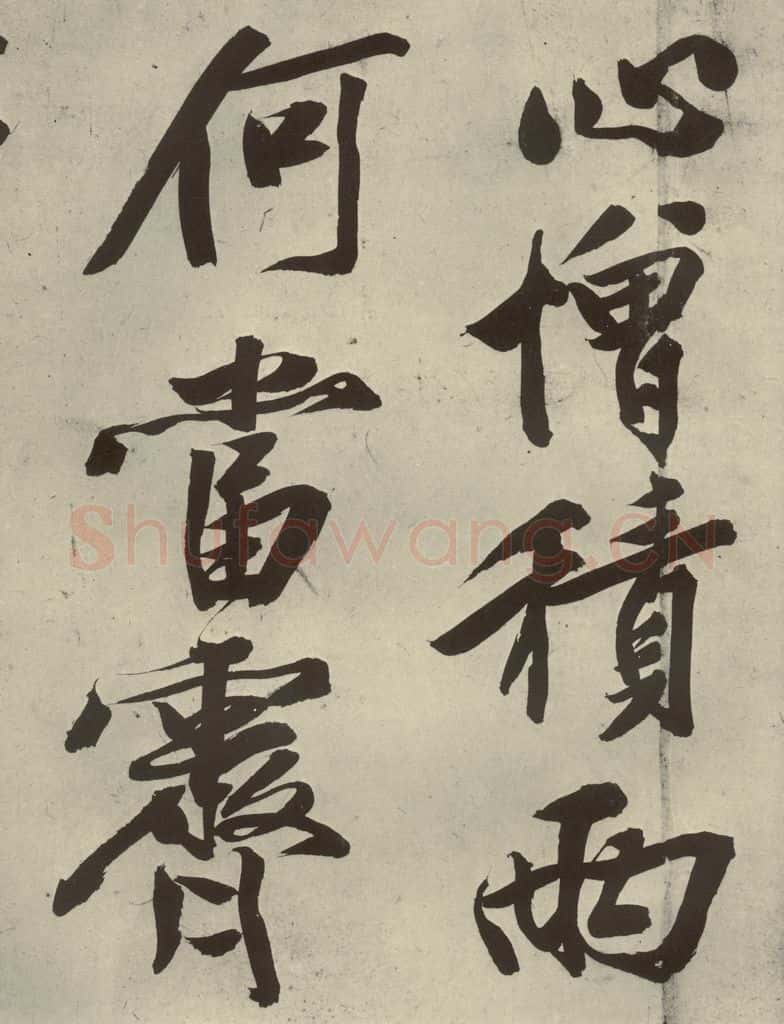 心憎積雨
何當霽
Shufawang.CN